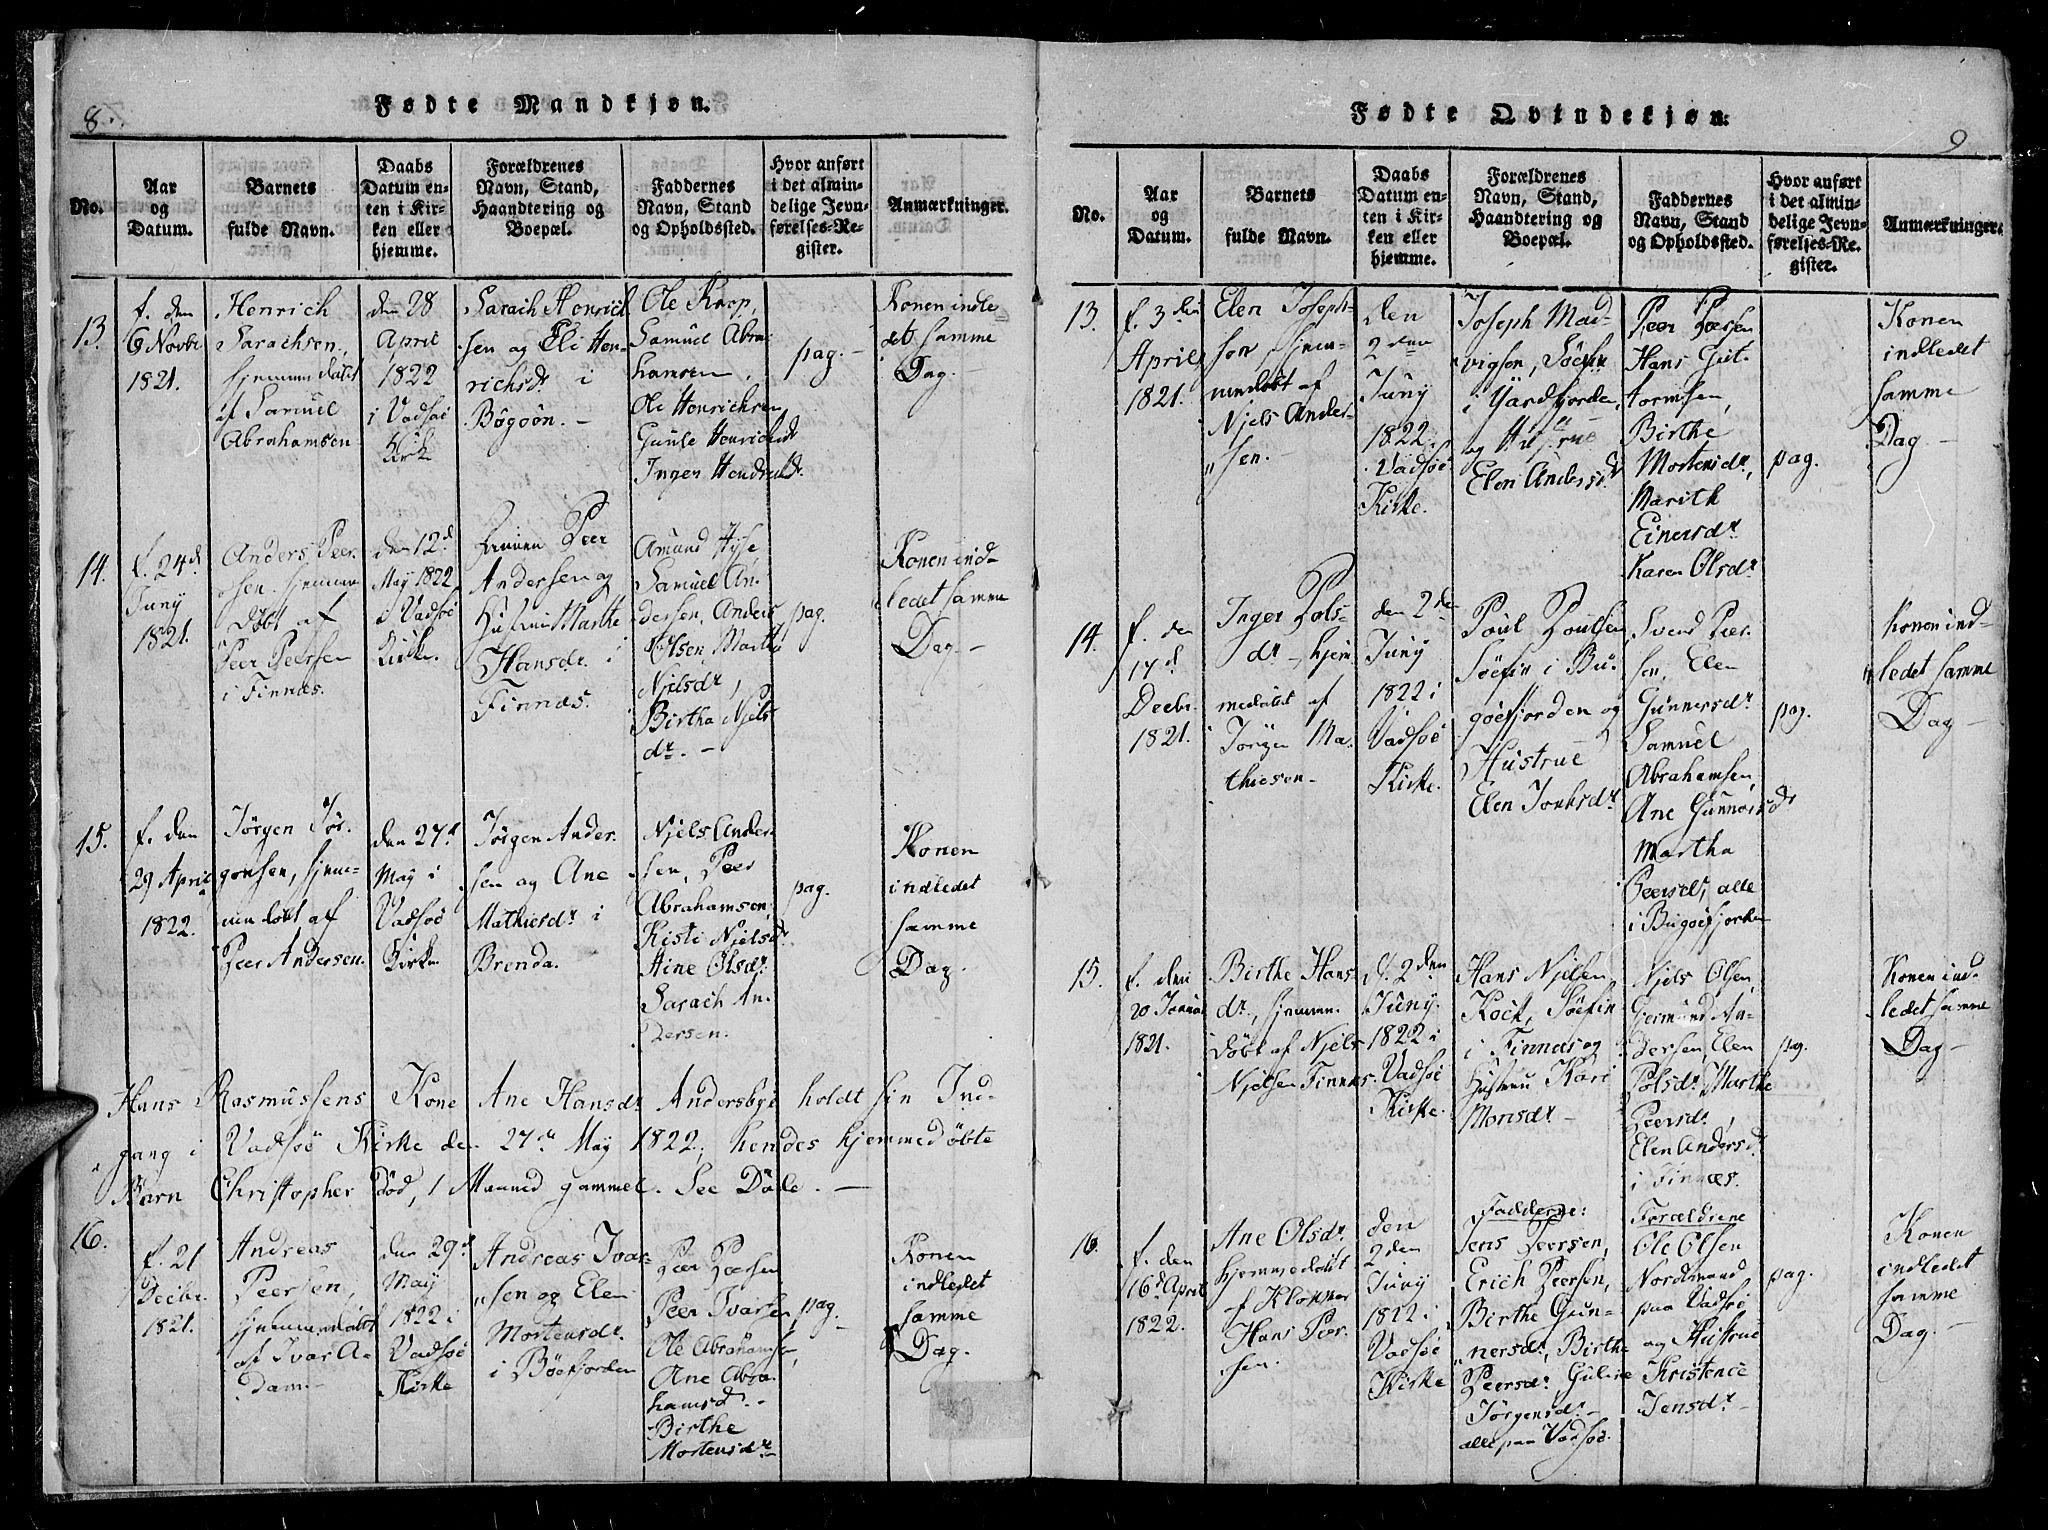 8.
Fødte Mandkjøn.
No.
Aar
og
Datum.
Barnets
fulde Navn.
Daabs
Datum en-
ten i Kir-
ken eller
hjemme.
Forældrenes
Navn, Stand,
Haandtering og
Boepæl.
Faddernes
Navn, Stand
og Opholdssted.
Hvor anført
i det almin-
delige Jevn-
førelses-Re-
gister.
Anmærkninger.
13.
f. den
6 Novbr
1821.
Henrich
Sarachsen,
hjemmedøbt
af Samuel
Abrahamsen
den 28
April
1822
i Vadsöe
Kirke
Sarach Henrich
sen og Eli Hen-
richsdr i
Bögöön.
Ole Krop,
Samuel Abra
hamsen,
Ole Henrichsen
Gunle Henrichsdr
Inger Hendrichsdr.
pag. -
Konen indle
det samme
Dag. -
14.
f. 24d.
Juny
1821.
Anders Peer
sen hjemme
döbt af
Peer Peersen
i Finnæs.
den 12d.
May 1822
i Vadsöe
Kirke.
Peer
Andersen og
Hustrue Marthe
Hansdr. i
Finnæs.
Amund Hysse
Samuel An-
dersen, Anders
Olsen, Martha
Njelsdr,
Birtha Njels
dr. -
pag.
Konen ind-
ledet samme
Dag. -
15.
f. den
29 April
1822.
Jörgen Jör-
gensen, hjem-
medöbt af
Peer Andersen.
den 27d
May i
Vadsöe
Kirke
Jörgen Ander-
sen og Ane
Mathiesdr i
Brenda.
Njels Ander-
sen, Peer
Abrahamsen,
Kisti Njelsdr.
Aine Olsdr.
Sarach An-
dersen.
pag.
Konen
indledet
samme
Dag.
Hans Rasmussens Kone Ane Hansdr Andersbye holdt sin Ind-
gang i Vadsöe Kirke den 27de May 1822; hendes hjemmedöbte
Barn Christopher Död, 1 Maaned gammel. See Döde. -
16.
f. 21
Decbr.
1821.
Andreas
Peersen,
hjemmedöbt
af Ivar A-
dam-
den 29d
May
1822 i
Vadsöe
Kirke
Andreas Ivar-
sen og Elen
Mortensdr.
i Böefjorden
Peer Peersen
Peer Ivarsen
Ole Abrahamse,
Ane Abra-
hamsd. -
Birthe
Mortensdr
pag.
Konen
indledet
samme
Dag.
9
Fødte Qvindekjøn.
No.
Aar
og
Datum.
Barnets
fulde Navn.
Daabs
Datum en-
ten i Kir-
ken eller
hjemme.
Forældrenes
Navn, Stand,
Haandtering og
Boepæl.
Faddernes
Navn, Stand
og Opholdssted.
Hvor anført
i det almin-
delige Jevn-
førelses-Re-
gister.
Anmærkninger.
13.
f. 3den
April
1821.
Elen Joseph-
son, hjem-
medöbt af
Njels Ander-
sen. -
den
2den
Juny
1822.
i Vadsöe
Kirke.
Joseph Mad-
vigson, Söefin
i Jardfjorden,
og Hustrue
Elen Andersdr
Peer Peersen
Hans Gut-
tormsen,
Birthe
Mortensdr,
Marith
Einersdr
Karen Olsdr
pag.
Konen
indledet
samme
Dag. -
14.
f. den
17d
Decbr.
1821.
Inger Pols-
dr - hjem
medöbt af
Jörgen Ma-
thiesen.
den 2den
Juny
1822 i
Vadsöe
Kirke.
Poul Poulsen
Söefin i Bu-
göefjorden og
Hustrue
Elen Jonhsdr
Svend Peer-
sen, Elen
Gunnersdr
Samuel
Abrahamsen,
Ane Gunnersdr
Martha
Peersdr, alle
i Bugöefjorden
pag.
Konen ind-
ledet samme
Dag -
15.
f. den
20 Januar
1821.
Birthe Hans-
dr., hjemme-
döbt af Njels
Njelsen Finnæs.
d. 2den
Juny
1822 i
Vadsöe
Kirke.
Hans Njelsen
Kock, Söefin
i Finnæs og
Hustrue Kari
Monsdr -
Njels Olsen,
Gjermund An-
dersen, Elen
Polsdr. Marthe
Peersdr.
Elen Andersdr
i Finnæs.
pag.
Konen ind-
ledet samme
Dag -
16.
f. den
16d April
1822.
Ane Olsdr.
hjemmedöbt
af Klokker
Hans Peer-
sen.
den
2den
Juny
1822 i
Vadsöe
Kirke
Fadderne:
Jens Peersen,
Erich Peersen,
Birthe Gun-
nersdr, Birthe
Peersdr Guline
Jörgensdr. -
alle paa Vadsöe.
Forældrene
Ole Olsen
Nordmand
paa Vadsöe
og Hustrue
Kristence
Jensdr -
pag.
Konen
indledet
samme
Dag. -